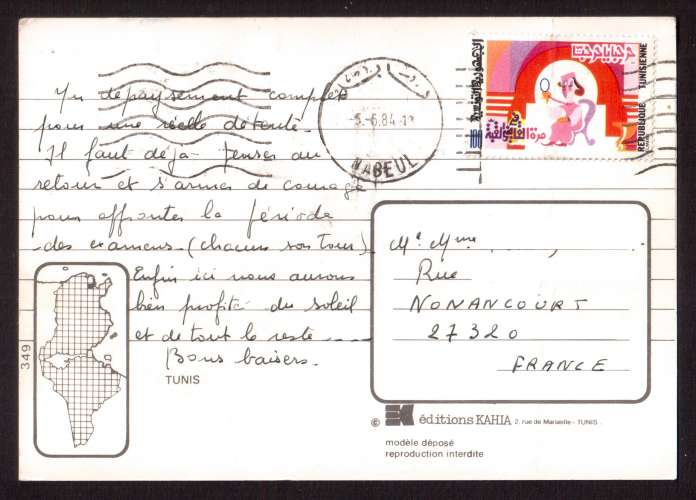 Un dépaysement complet
pour une réelle détente.
Il faut déjà penser au
retour et s'armer de courage
pour affronter la période
des examens. (chacun son tour)
Enfin ici nous aurons
bien profité du soleil
et de tout le reste ....
Bons baisers.
TUNIS
349
-5.-6.84
NABEUL
REPUBLIQUE TUNISIENNE
الجمهورية التونسية
Mr Mme
Rue
NONANCOURT
27320
FRANCE
© éditions KAHIA 2, rue de Marseille - TUNIS.
modèle déposé
reproduction interdite